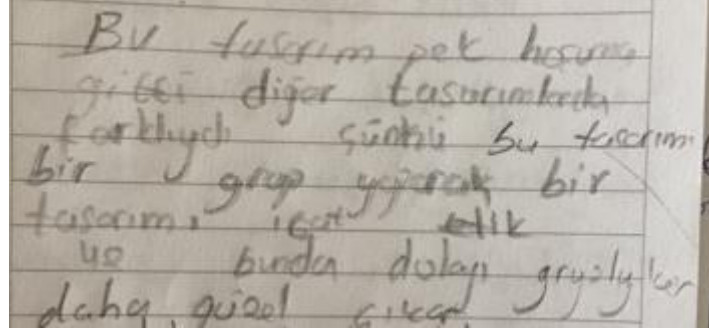 Bu tasarım pek hoşuma
gitti diğer tasarımlarda
farklıydı çünkü bu tasarım
bir grup yaparak bir
tasarımı icat etik
ve bunda dolayı
daha güzel çıkar